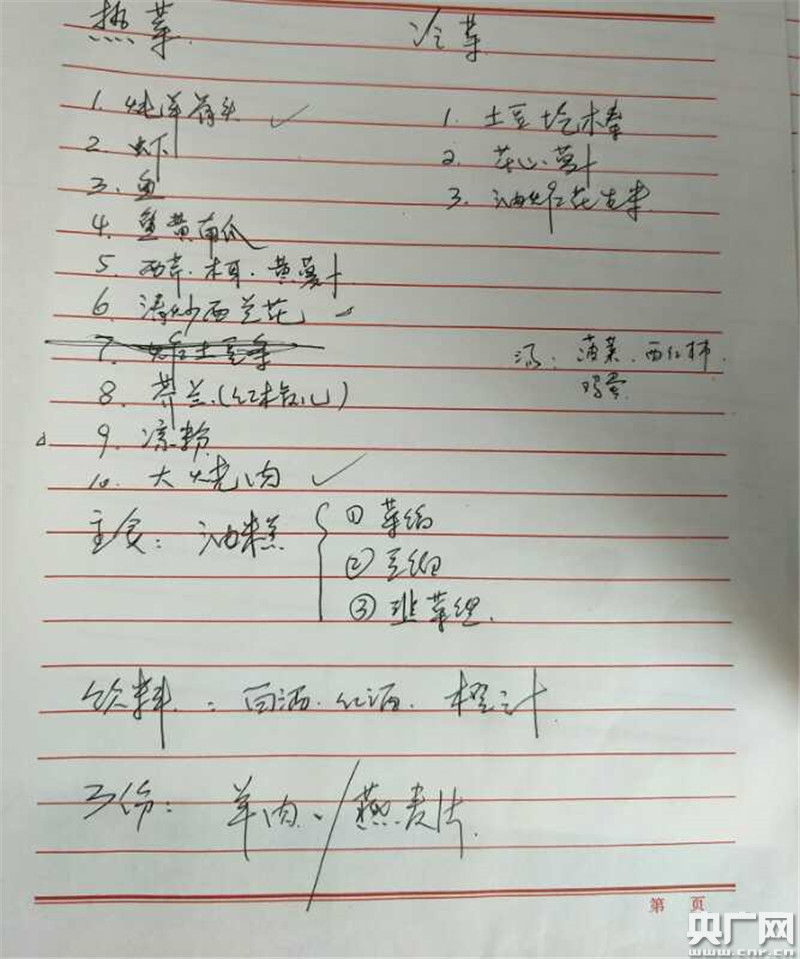 热菜
1. 炖羊骨头 ✓
2. 虾
3. 鱼
4. 蛋黄南瓜
5. 西芹.木耳.黄萝卜
6. 清炒西兰花
7. 土豆
8. 芥兰.(红根红心)
9. 凉粉
10. 大烧肉 ✓
冷菜
1. 土豆
2. 花心萝卜
3. 油炸花生米
汤: 菠菜.西红柿.
鸡蛋
主食: 油糕
① 菜馅
② 豆馅
③ 韭菜
饮料: 白酒.红酒.橙汁
3份: 羊肉、/燕麦片
第 页
央广网
www.cnr.cn